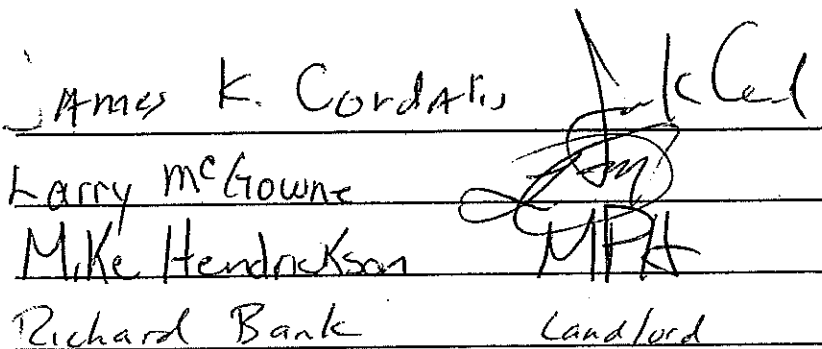 James K. Cordatis
Larry McGowne
Mike Hendrickson MPH
Richard Bank Landlord